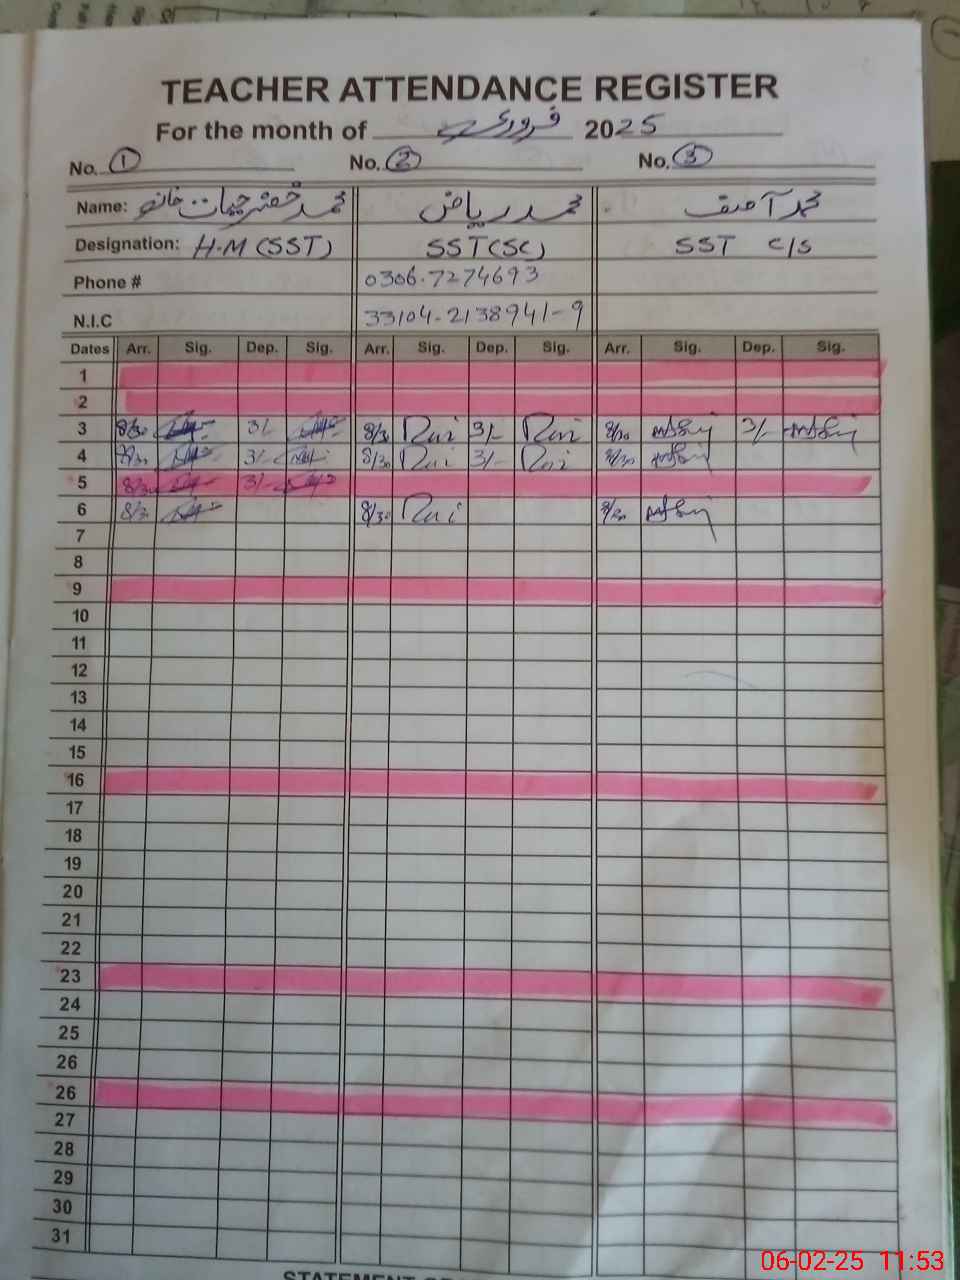 TEACHER ATTENDANCE REGISTER
For the month of فروری 2025
No. 1 No. 2 No. 3
Name: محمد خضر حیات خان محمد ریاض محمد آصف
Designation: H.M (SST) SST(SC) SST C/S
Phone # 0306-7274693
N.I.C 33104-2138941-9
Dates Arr. Sig. Dep. Sig. Arr. Sig. Dep. Sig. Arr. Sig. Dep. Sig.
1
2
3 8/30 3/- 8/30 3/- 8/30 3/-
4 8/30 3/- 8/30 3/- 8/30
5 8/30 3/-
6 8/30 8/30 8/30
7
8
9
10
11
12
13
14
15
16
17
18
19
20
21
22
23
24
25
26
26
27
28
29
30
31
06-02-25 11:53